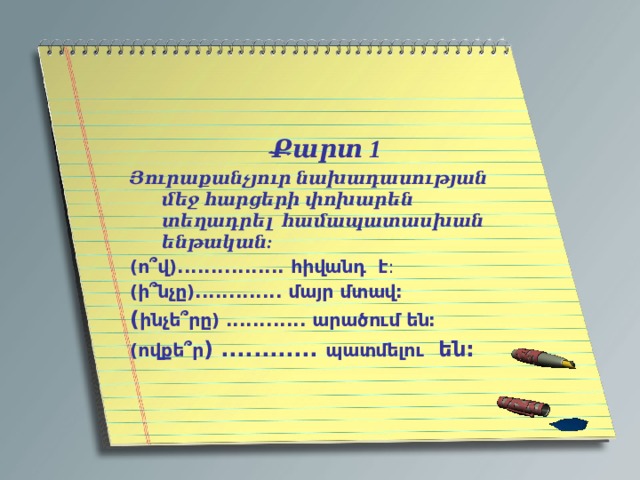 Քարտ 1
Յուրաքանչյուր նախադասության
մեջ հարցերի փոխարեն
տեղադրել համապատասխան
ենթական:
(ո՞վ)................ հիվանդ է:
(ի՞նչը)............. մայր մտավ:
(ինչե՞րը) ............ արածում են:
(ովքե՞ր) ............ պատմելու են: